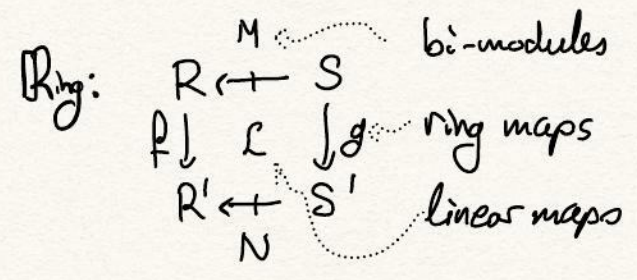 M bi-modules
ℝing: R ⇸ S
f ↓ L ↓ g ring maps
R' ⇸ S' linear maps
N